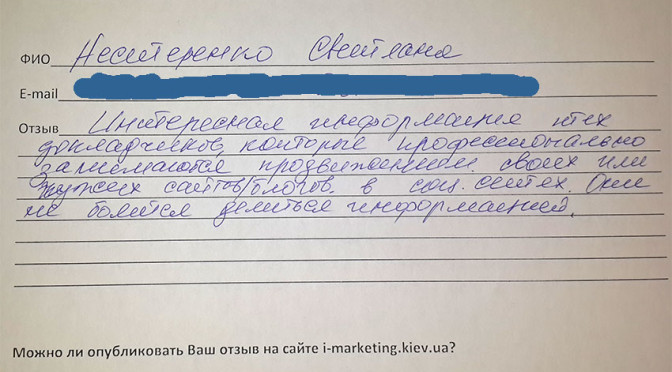 ФИО Нестеренко Светлана
E-mail
Отзыв Интересная информация у тех
докладчиков, которые профессионально
занимаются продвижением своих или
чужих сайтов/блогов в соц. сетях. Они
не боятся делиться информацией.
Можно ли опубликовать Ваш отзыв на сайте i-marketing.kiev.ua?